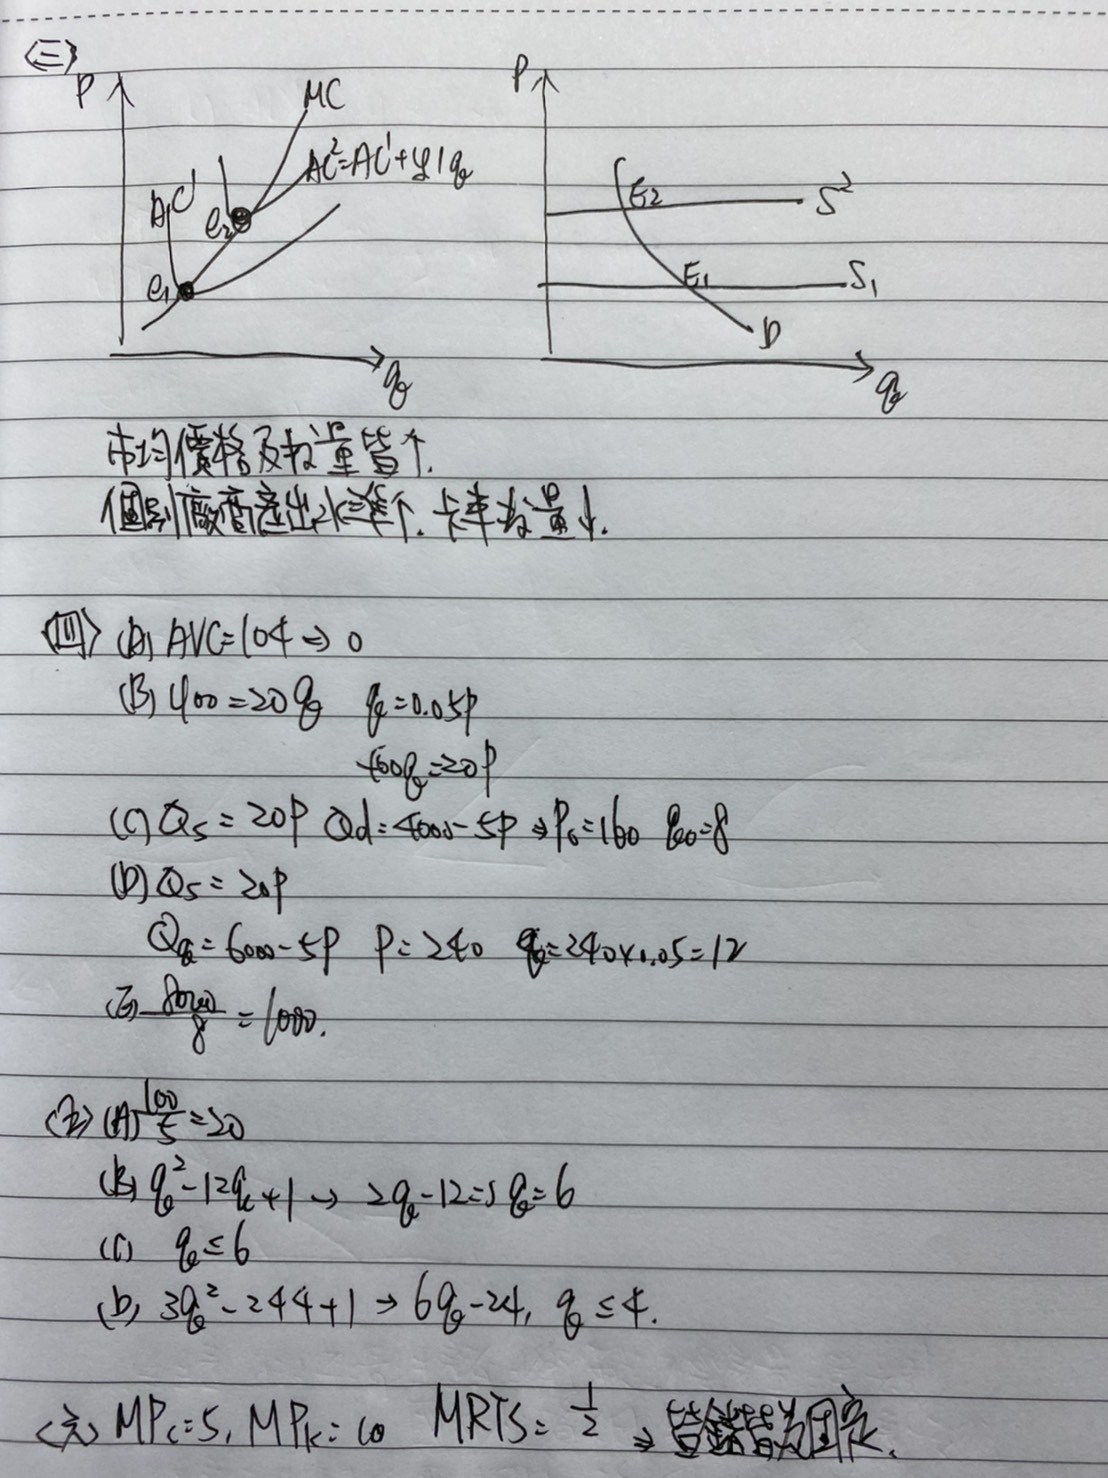 〈三〉
P
MC
AC²=AC¹+y/q
AC¹
e₂
e₁
q
P
E₂
S²
E₁
S₁
D
q
市均價格及數量皆↑.
個別廠商產出水準↑. 卡車數量↓.
〈四〉(A) AVC=10q → 0
(B) 400=20q q=0.05P
400q=20P
(C) Qs=20P Qd=4000-5P → P₀=160 q₀=8
(D) Qs=20P
Qd=6000-5P P=240 q=240×0.05=12
(E) 8000/8=1000.
〈五〉(A) 100/5=20
(B) q²-12q+1 → 2q-12=) q=6
(C) q≤6
(D) 3q²-244+1 → 6q-24, q≤4.
〈六〉MPL=5, MPK=10 MRTS=1/2 → 皆為固定.